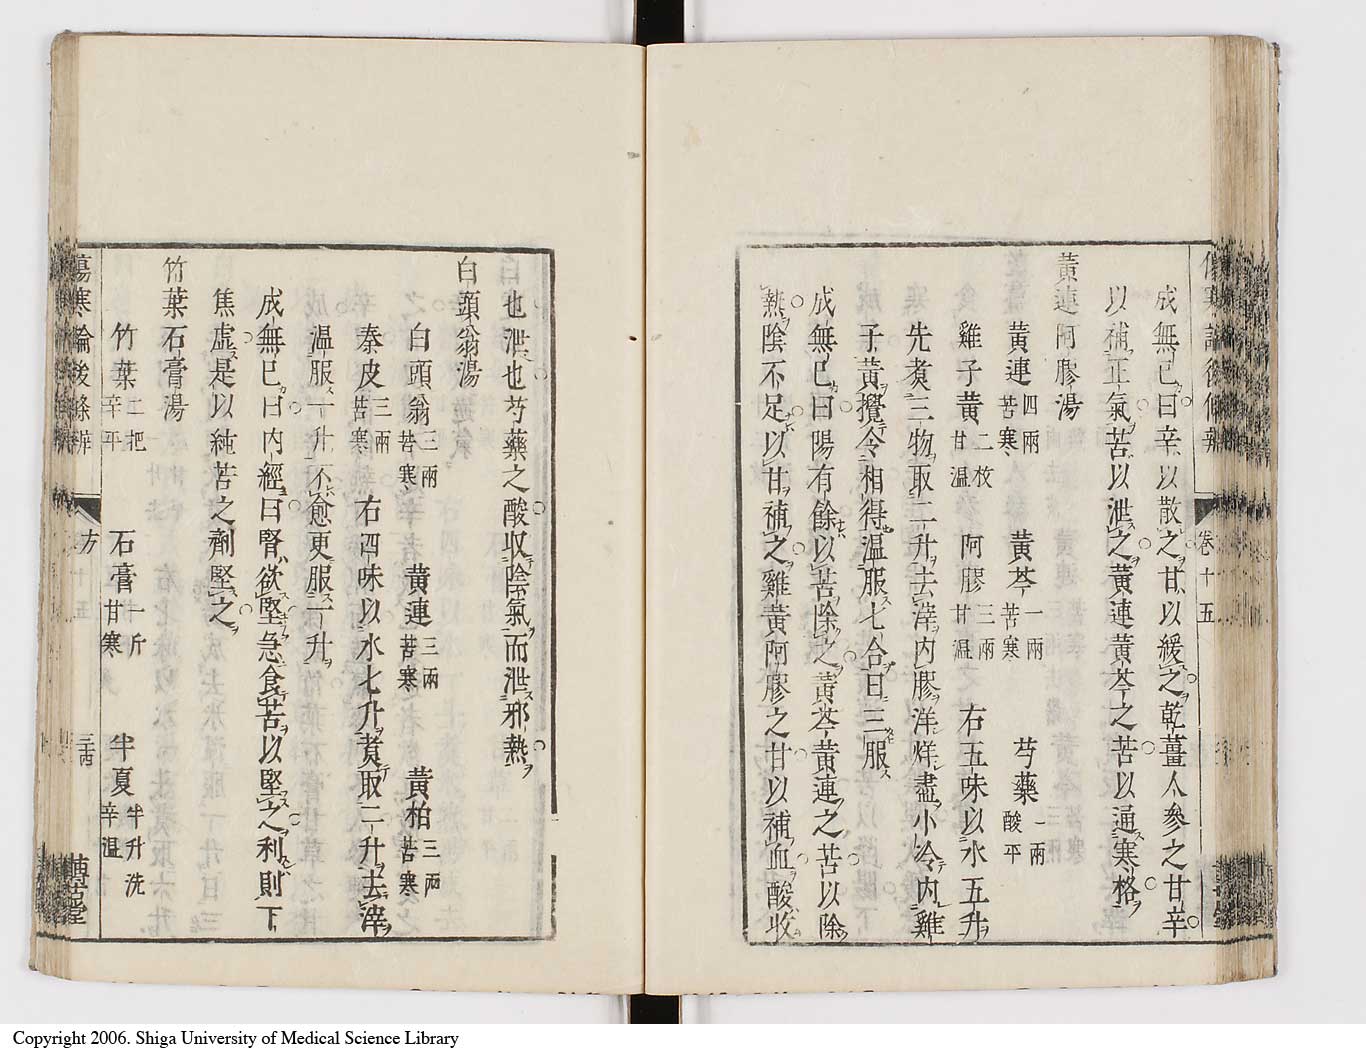 成無已曰辛以散之甘以緩之乾薑人參之甘辛
以補正氣苦以泄之黃連黃芩之苦以通寒格
黃連阿膠湯
黃連四兩苦寒 黃芩一兩苦寒 芍藥一兩酸平
雞子黃二枚甘溫 阿膠三兩甘溫 右五味以水五升
先煑三物取二升去滓內膠洋烊盡小冷內雞
子黃攪令相得溫服七合日三服
成無已曰陽有餘以苦除之黃芩黃連之苦以除
熱陰不足以甘補之雞黃阿膠之甘以補血酸收
卷十五
也泄也芍藥之酸收陰氣而泄邪熱
白頭翁湯
白頭翁三兩苦寒 黃連三兩苦寒 黃柏三兩苦寒
秦皮三兩苦寒 右四味以水七升煑取二升去滓
溫服一升不愈更服一升
成無已曰內經曰腎欲堅急食苦以堅之利則下
焦虛是以純苦之劑堅之
竹葉石膏湯
竹葉二把辛平 石膏一斤甘寒 半夏半升洗辛溫
傷寒論後條辨 方 十五 三四 博古堂
Copyright 2006. Shiga University of Medical Science Library